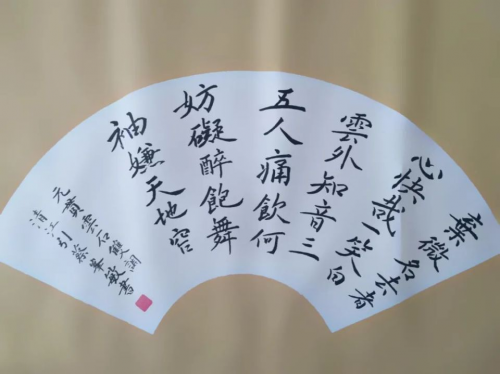 棄微名去者
心快哉一笑白
雲外知音三
五人痛飲何
妨礙醉飽舞
袖嫌天地窄
元貫雲石雙調
清江引蔡華敏書